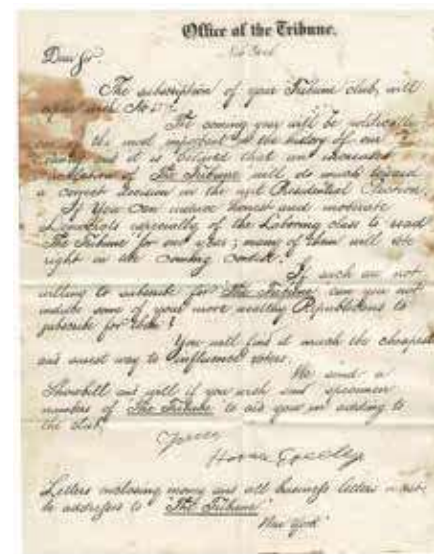 Office of the Tribune.
New York
Dear Sir.
The subscription of your Tribune club, will
expire with No
The coming year will be politically
one of the most important in the history of our
and it is believed that an increased
circulation of The Tribune will do much toward
a correct decision in the next Presidential Election.
If you can induce honest and moderate
Democrats especially of the Laboring class to read
The Tribune for one year; many of them will vote
right in the coming contest.
If such are not
willing to subscribe for The Tribune can you not
induce some of your more wealthy Republicans to
subscribe for them?
You will find it much the cheapest
and surest way to influence voters.
We send a
Showbill and will if you wish send specimen
numbers of The Tribune to aid you in adding to
the club.
Yours
Horace Greeley
Letters enclosing money and all business letters must
be addressed to "The Tribune"
New York